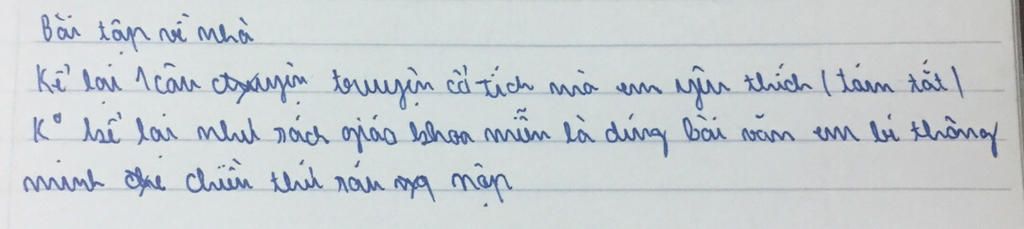 Bài tập về nhà
Kể lại 1 câu chuyện truyện cổ tích mà em yêu thích (tóm tắt)
K° kể lại như sách giáo khoa miễn là đúng bài văn em bé thông
minh chiều thứ sáu nộp